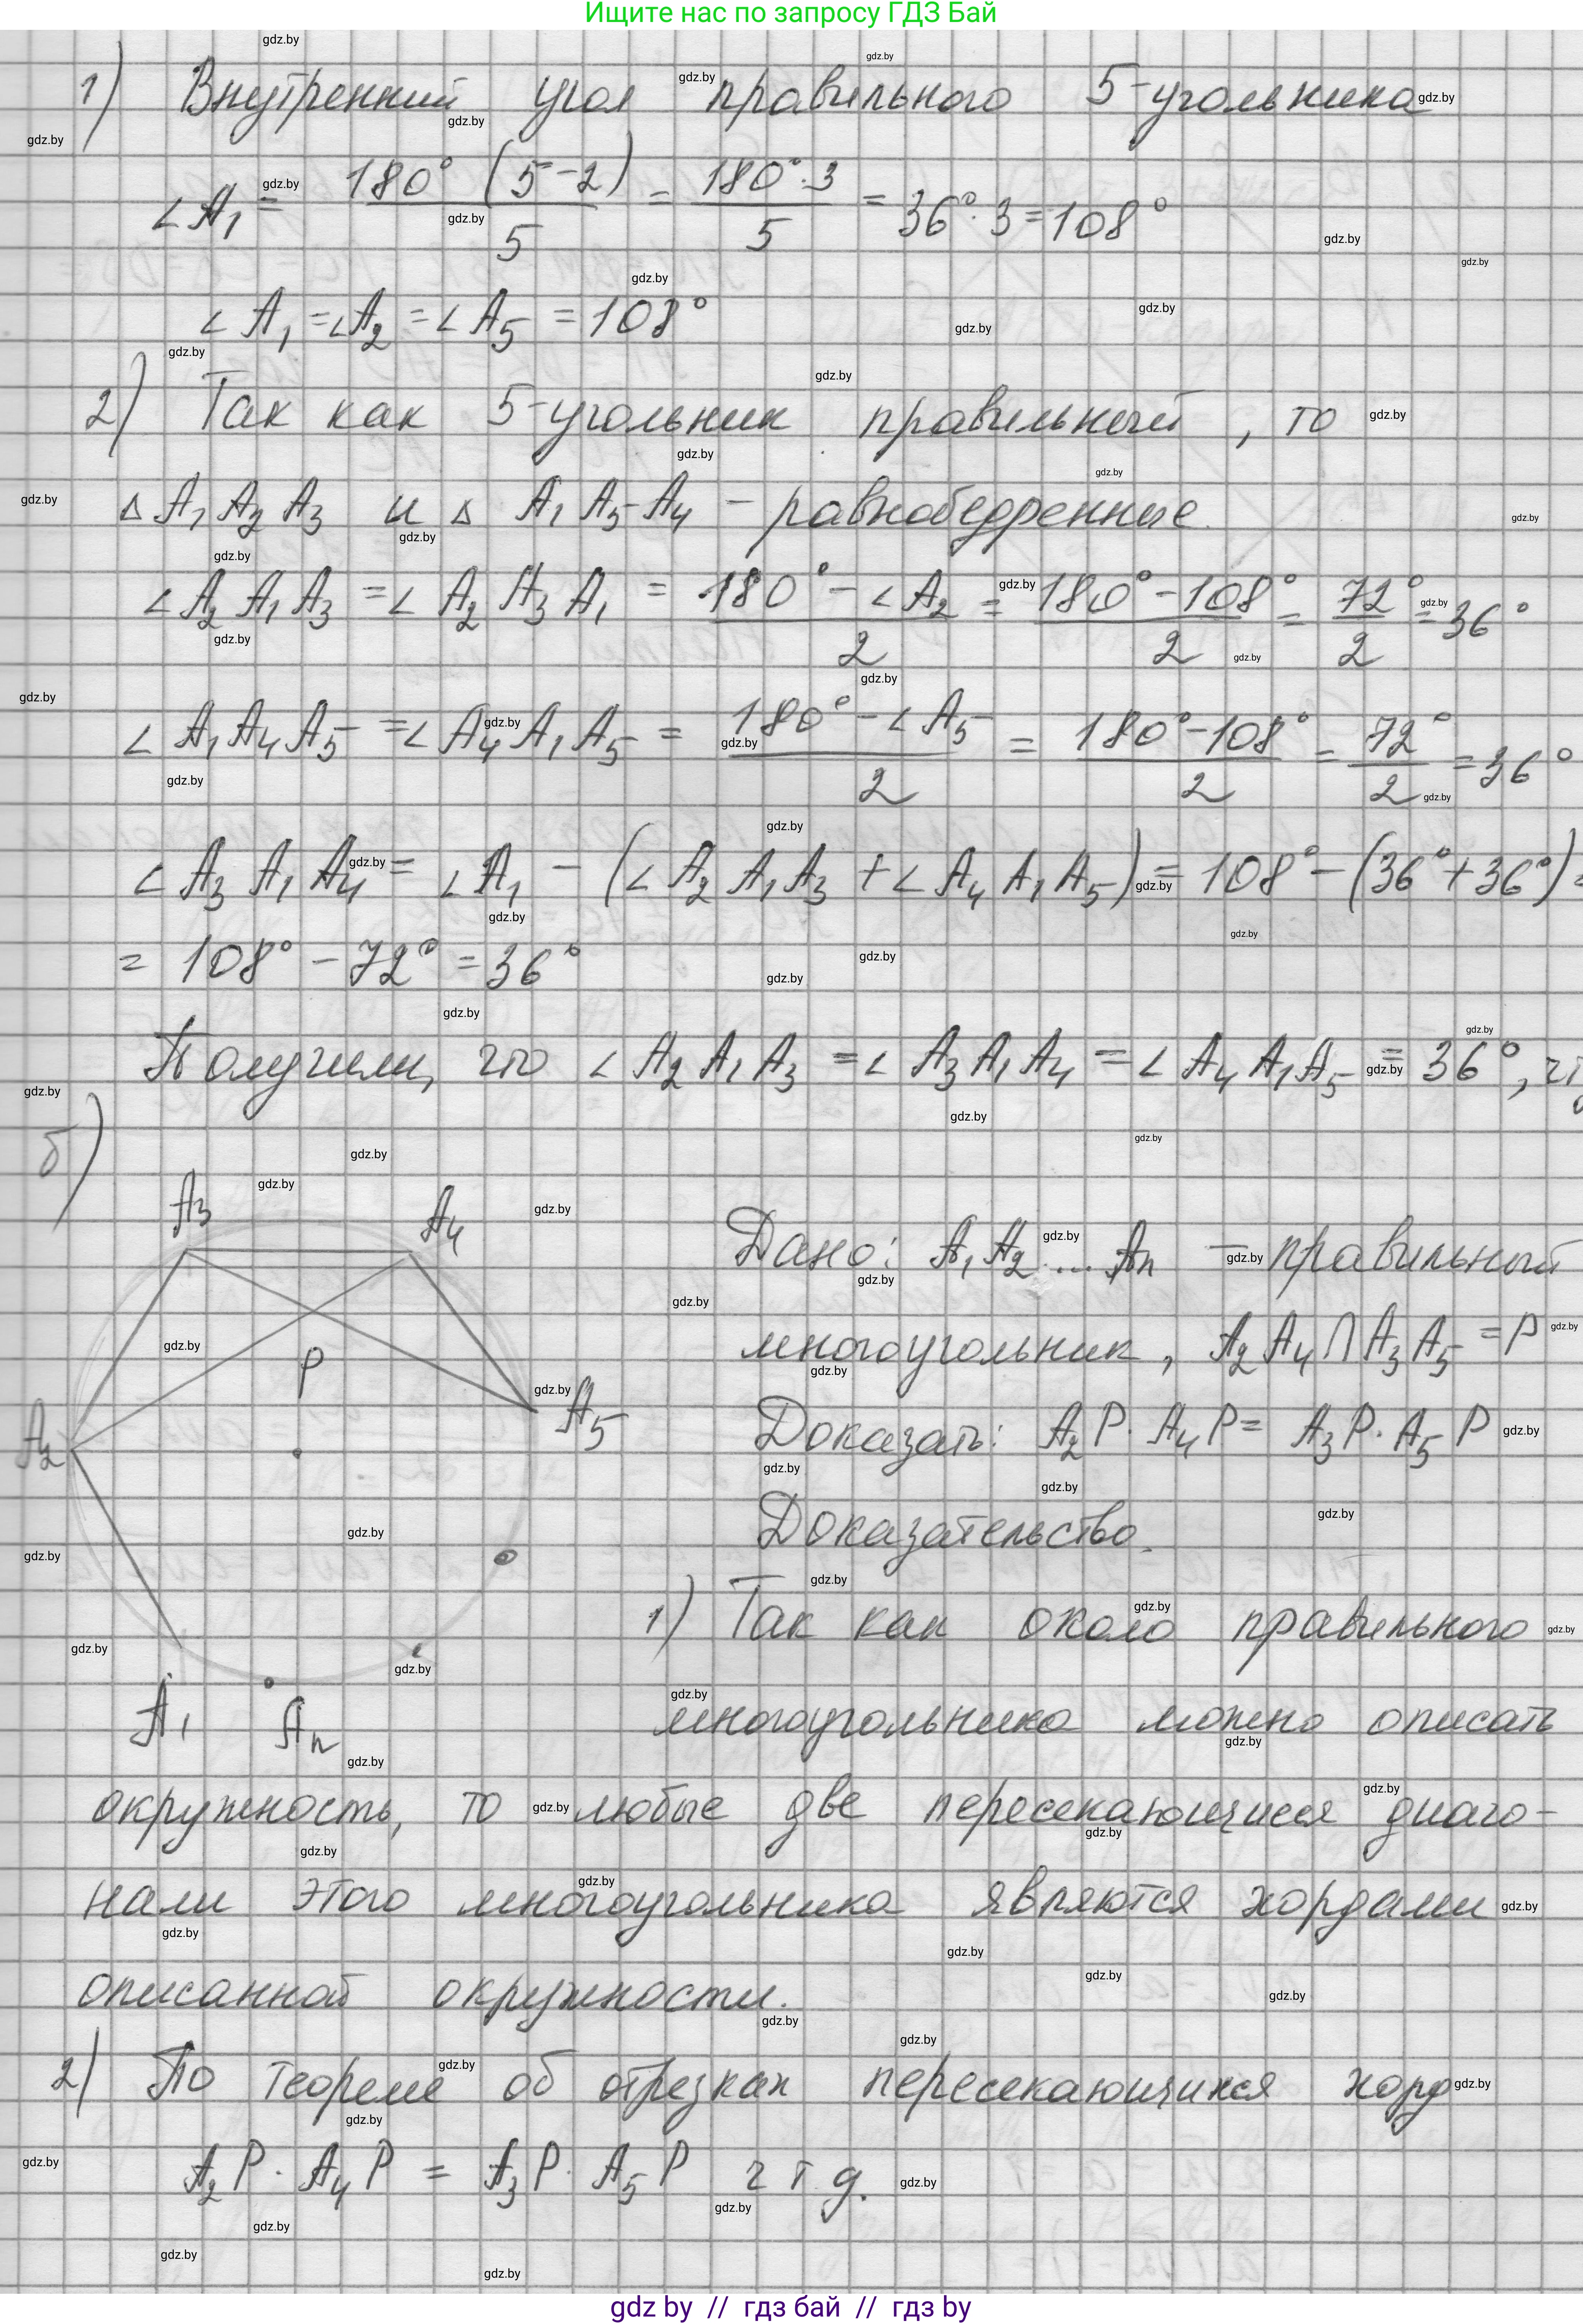 Ищите нас по запросу ГДЗ Бай
1) Внутренний угол правильного 5-угольника
∠A₁ = 180°(5-2)/5 = 180°·3/5 = 36°·3 = 108°
∠A₁ = ∠A₂ = ∠A₅ = 108°
2) Так как 5-угольник правильный, то
△A₁A₂A₃ и △A₁A₅A₄ - равнобедренные.
∠A₂A₁A₃ = ∠A₂A₃A₁ = (180° - ∠A₂)/2 = (180° - 108°)/2 = 72°/2 = 36°
∠A₁A₄A₅ = ∠A₄A₁A₅ = (180° - ∠A₅)/2 = (180° - 108°)/2 = 72°/2 = 36°
∠A₃A₁A₄ = ∠A₁ - (∠A₂A₁A₃ + ∠A₄A₁A₅) = 108° - (36° + 36°) =
= 108° - 72° = 36°
Получили, что ∠A₂A₁A₃ = ∠A₃A₁A₄ = ∠A₄A₁A₅ = 36°,
б)
A₃ A₄
Дано: A₁A₂...Aₙ - правильный
P
многоугольник, A₂A₄ ∩ A₃A₅ = P
A₂ A₅
Доказать: A₂P · A₄P = A₃P · A₅P
Доказательство.
1) Так как около правильного
A₁ Aₙ
многоугольника можно описать
окружность, то любые две пересекающиеся диаго-
нали этого многоугольника являются хордами
описанной окружности.
2) По теореме об отрезках пересекающихся хорд
A₂P · A₄P = A₃P · A₅P ч т д.
gdz by // гдз бай // гдз by